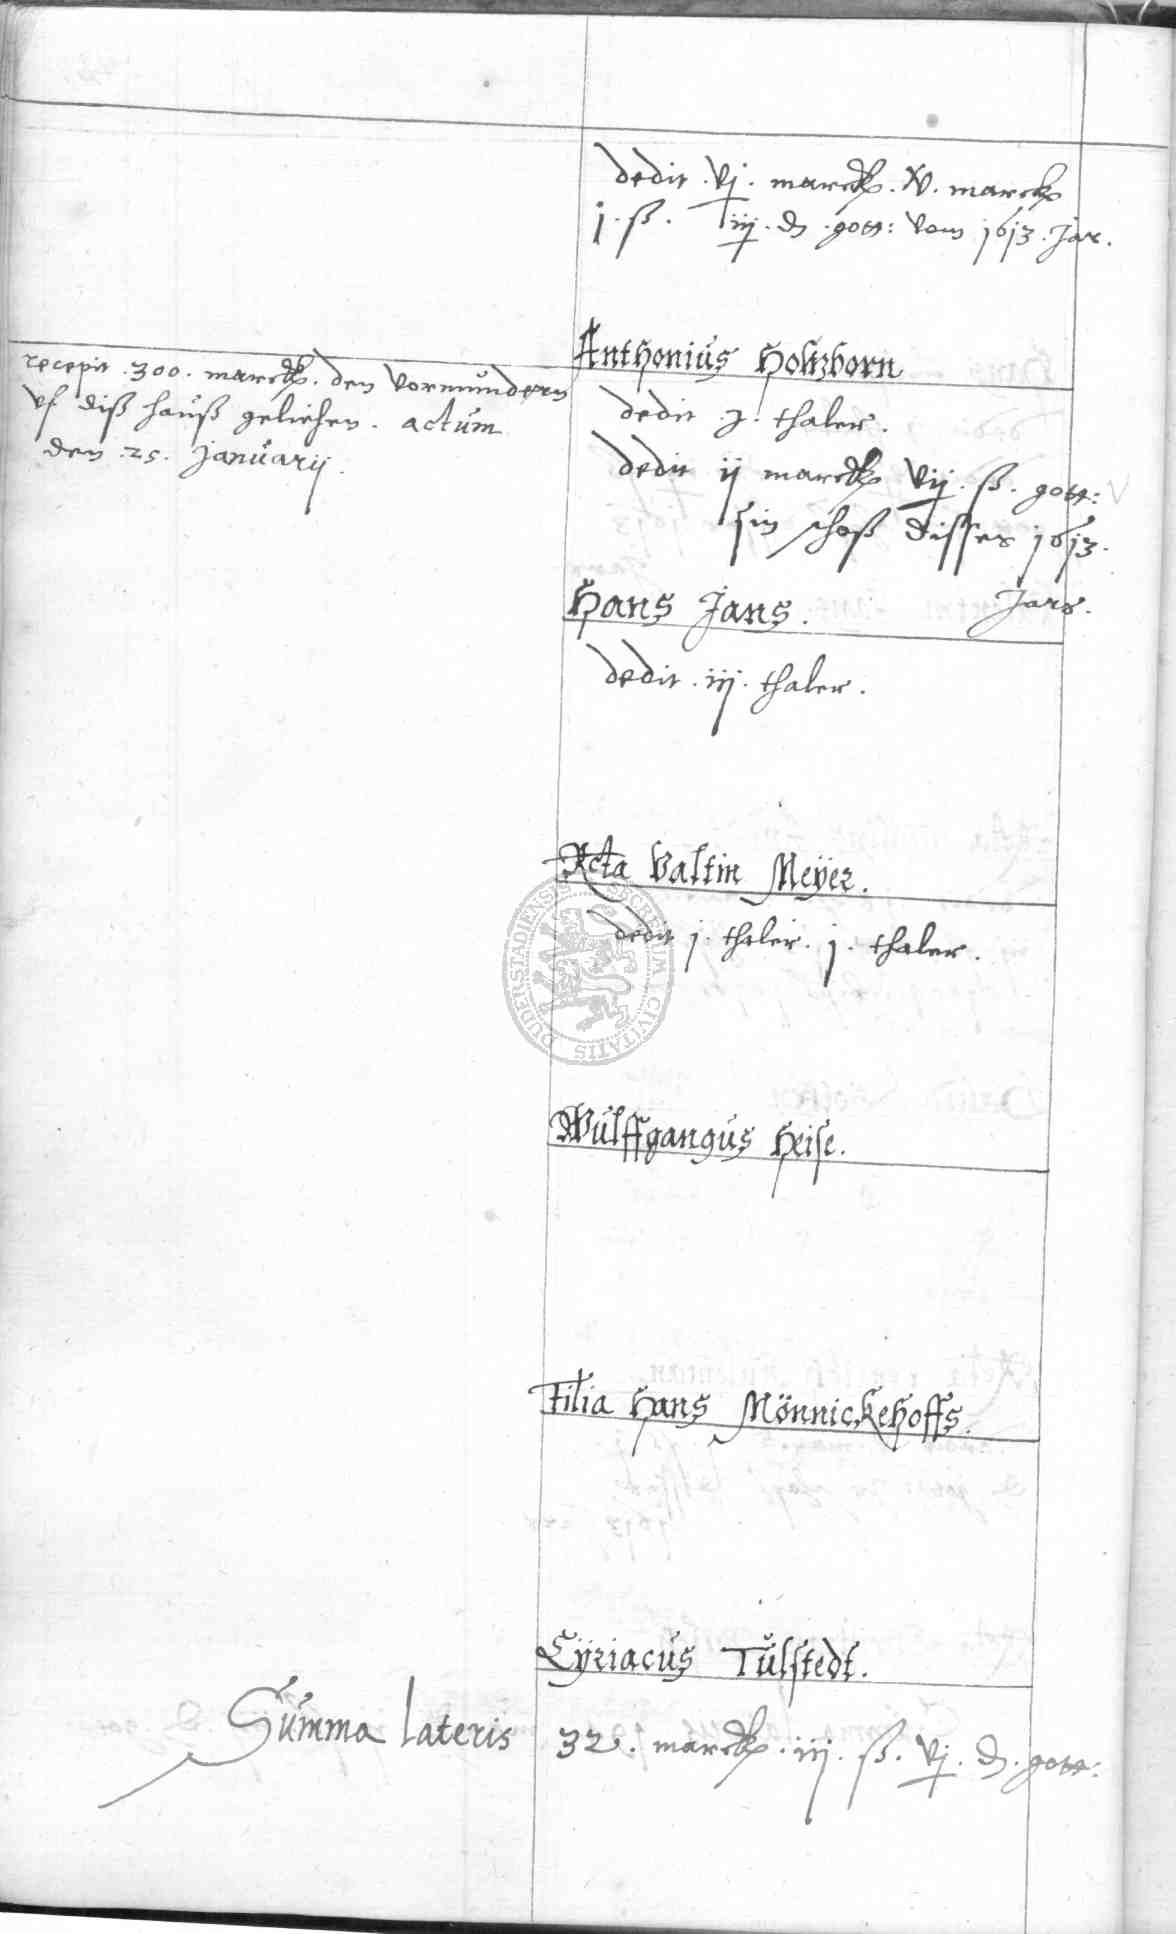 dedit . vj . marck . xv . marck
j . ß . iij . d . gott : vom 1613 . Jar .
Anthonius Holtzborn
recepit . 300 . marck . den Vormundern
vf diß hauß geliehen . actum
den . 25 . Januarij .
dedit . j . thaler .
dedit ij marck vij . ß . gott :
sin schoß disses 1613 .
Jars .
Hans Jans .
dedit . iij . thaler .
Acta Valtin Meÿer .
dedit j . thaler . j . thaler .
DUDERSTADIENSIS SECRETUM CIVITATIS
Wulffgangus Heise .
Filia Hans Mönnickehoffs .
Cÿriacus Tulstedt .
Summa lateris 32 . marck . iij . ß . vj . d . gott :